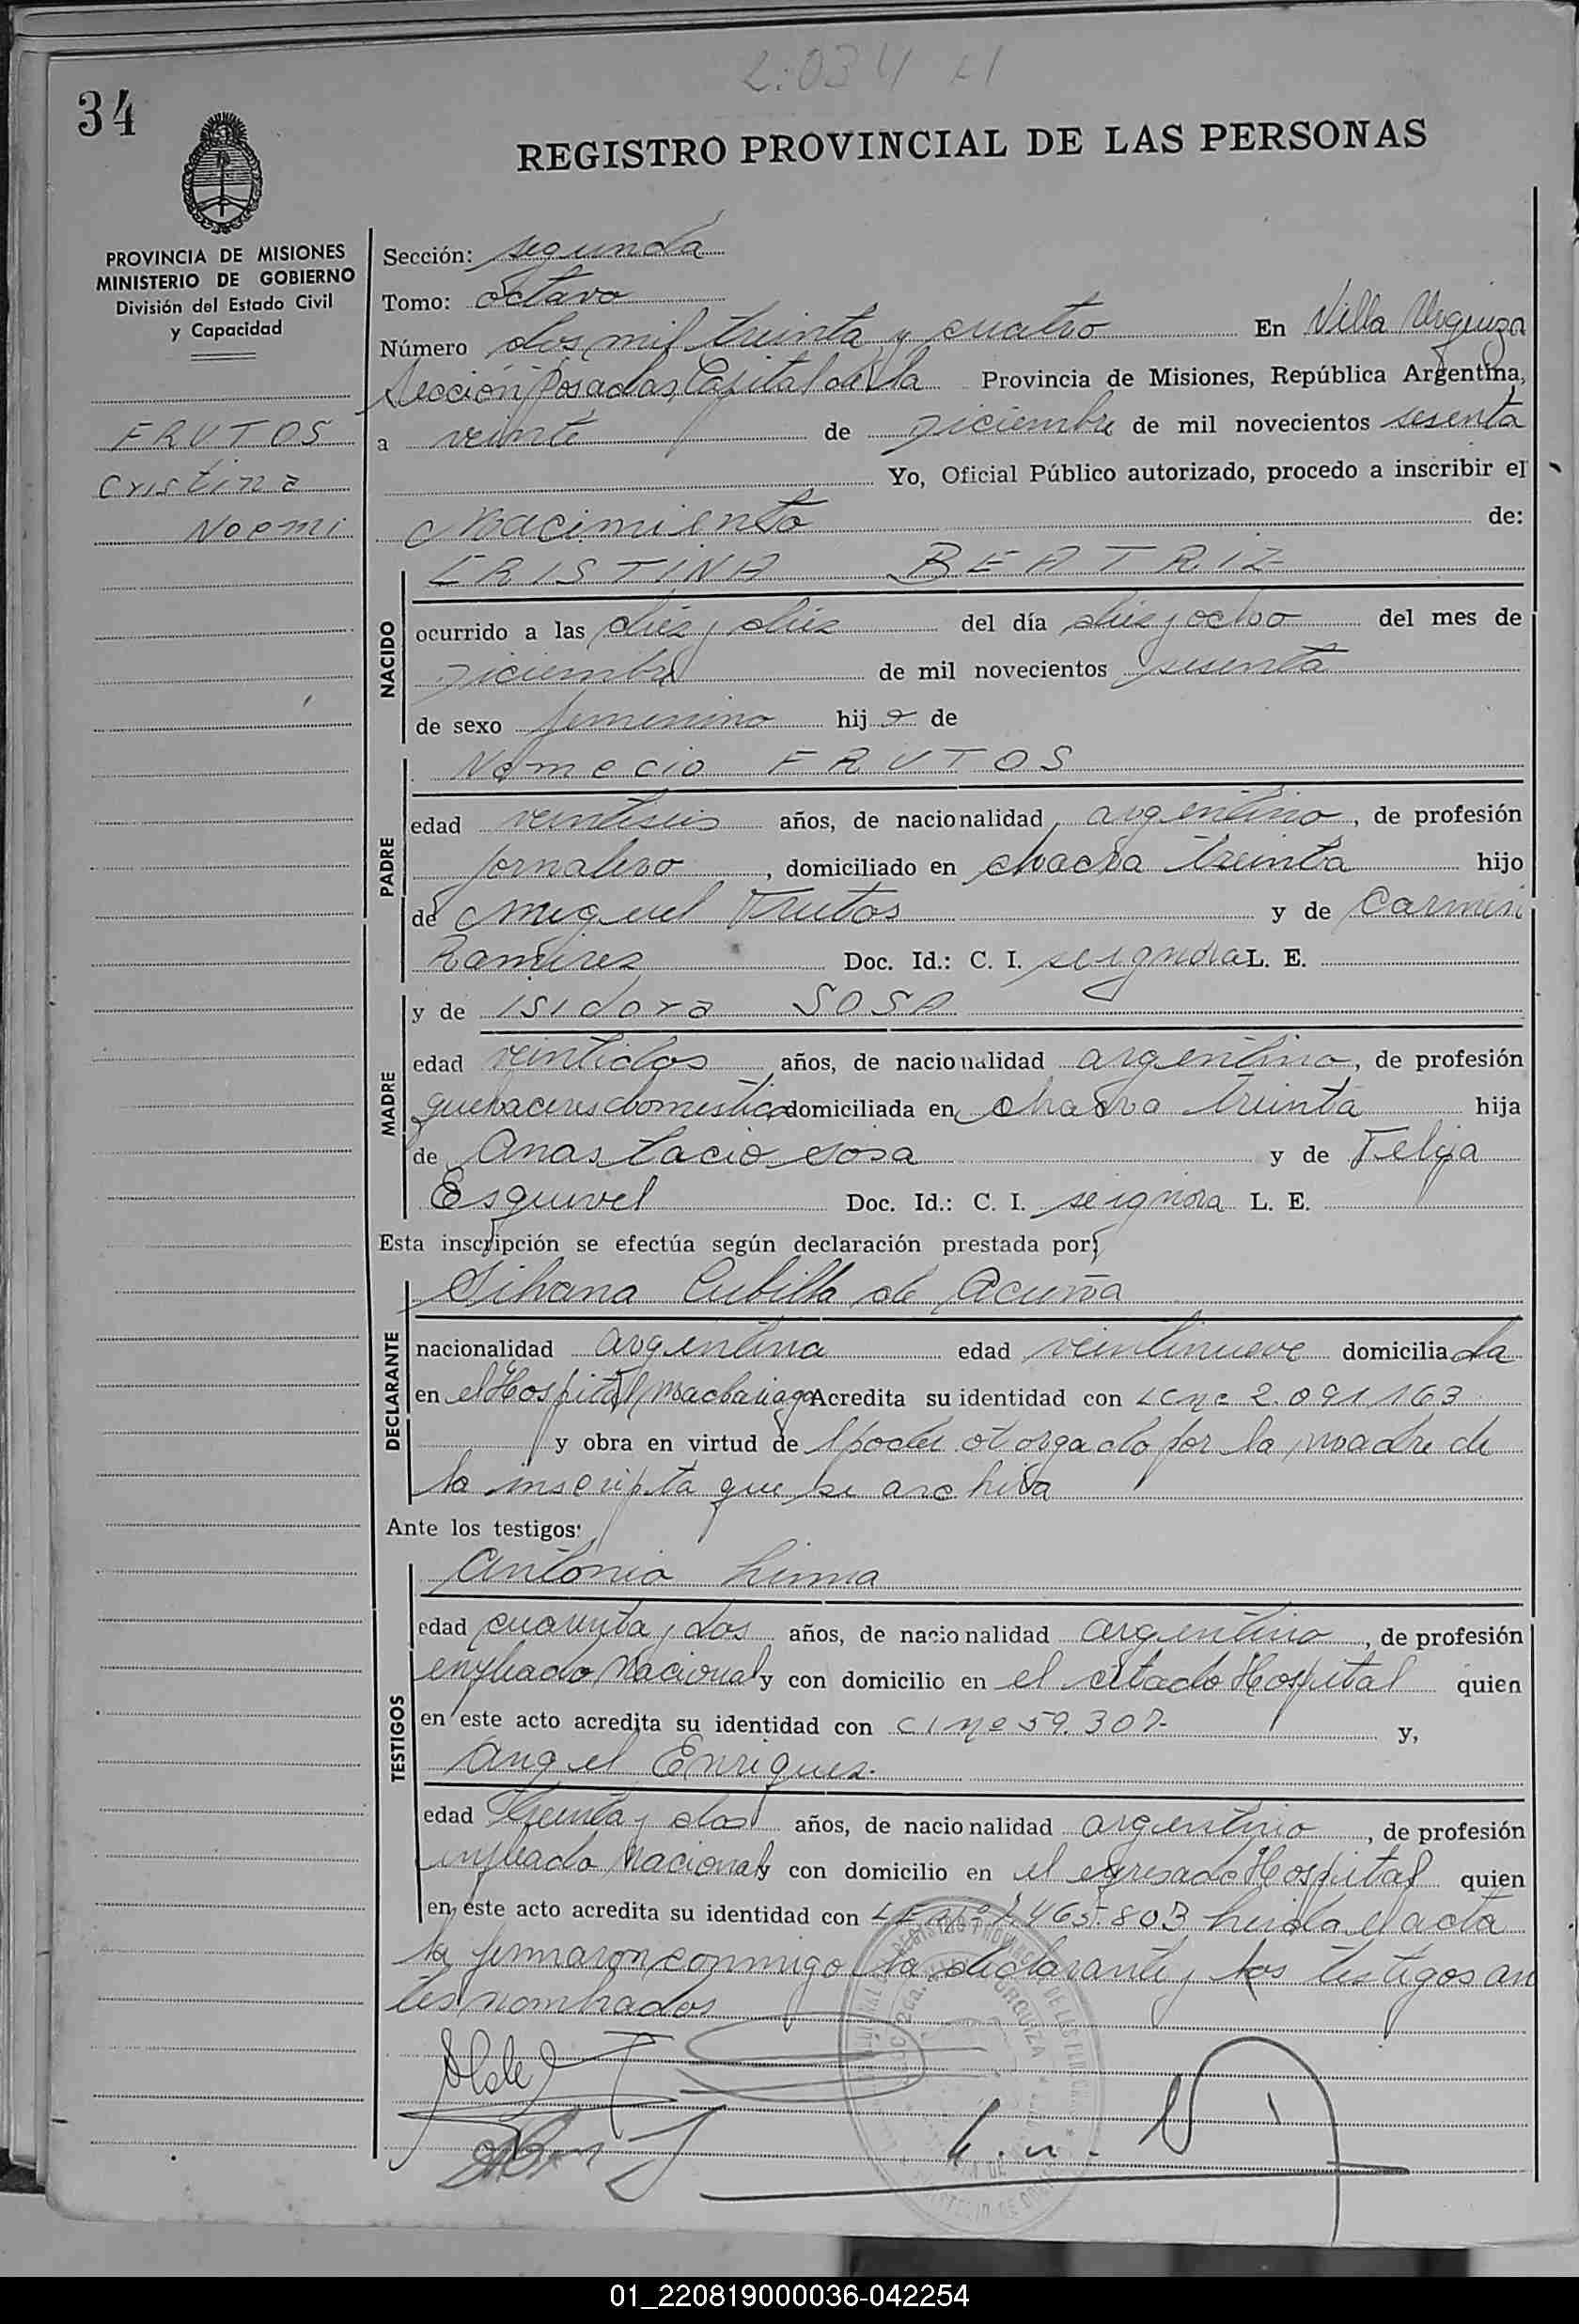 2.034
34
REGISTRO PROVINCIAL DE LAS PERSONAS
PROVINCIA DE MISIONES
MINISTERIO DE GOBIERNO
División del Estado Civil
y Capacidad
FRUTOS
Cristina
Noemi
Sección: segunda
Tomo: octavo
Número dos mil treinta y cuatro En Villa Urquiza
Sección Posadas, Capital de la Provincia de Misiones, República Argentina,
a veinte de Diciembre de mil novecientos sesenta
Yo, Oficial Público autorizado, procedo a inscribir el
Nacimiento de:
NACIDO
CRISTINA BEATRIZ
ocurrido a las diez y diez del día diez y ocho del mes de
Diciembre de mil novecientos sesenta
de sexo femenino hija de
PADRE
Nemecio FRUTOS
edad veintiseis años, de nacionalidad argentino, de profesión
jornalero, domiciliado en chacra treinta hijo
de Miguel Frutos y de Carmen
Ramirez Doc. Id.: C. I. se ignora L. E.
MADRE
y de Isidora SOSA
edad veintidos años, de nacionalidad argentina, de profesión
quehaceres domestico domiciliada en chacra treinta hija
de Anastacio Sosa y de Felisa
Esquivel Doc. Id.: C. I. se ignora L. E.
Esta inscripción se efectúa según declaración prestada por:
DECLARANTE
Silvana Cubilla de Acuña
nacionalidad argentina edad veintinueve domiciliada
en el Hospital Madariaga Acredita su identidad con LC nº 2.091.163
y obra en virtud de poder otorgado por la madre de
la inscripta que se archiva
Ante los testigos:
TESTIGOS
Antonio
edad cuarenta y dos años, de nacionalidad argentino, de profesión
empleado Nacional y con domicilio en el citado Hospital quien
en este acto acredita su identidad con CI nº 59.307- y,
Angel Enriquez.
edad treinta y dos años, de nacionalidad argentino, de profesión
empleado Nacional y con domicilio en el expresado Hospital quien
en este acto acredita su identidad con LE nº 1.465.803 leida el acta
la firmaron conmigo la declarante y los testigos an
tes nombrados
01_220819000036-042254